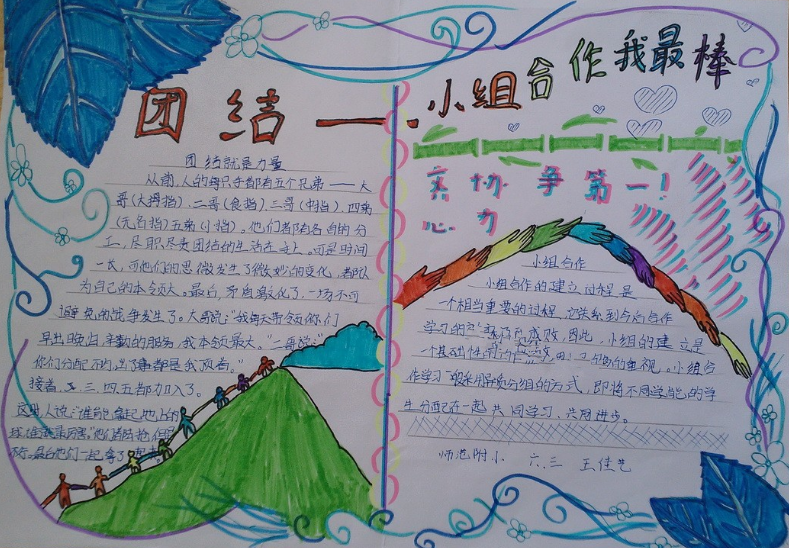 团结一.小组合作我最棒
团结就是力量
从前,人的每只手都有五个兄弟——大
哥(大拇指)、二哥(食指)、三哥(中指)、四弟
(无名指)五弟(小指)。他们都有各自的分
工,尽职尽责团结的生活在手上。可是时间
一长,可他们的思微发生了微妙的变化,都认
为自己的本领大。最后,矛盾激化了,一场不可
避免的战争发生了。大哥说:"我每天带领你们
早出晚归,辛勤的服务,我本领最大。"二哥说:"
你们分配不均,出了事都是我顶着。"
接着,三、四、五都加入了。
这时,人说:谁能拿起地上的
球,谁就最厉害。"他们
最后他们一起拿了
齐心协力争第一!
小组合作
小组合作的建立过程是
一个相当重要的过程,它关系到今后合作
学习的成败,因此,小组的建立是
一个基础性的的重视。小组合
作学习一般采用异质分组的方式,即将不同学能的学
生分配在一起共同学习,共同进步。
师范附小 六.三 王佳艺